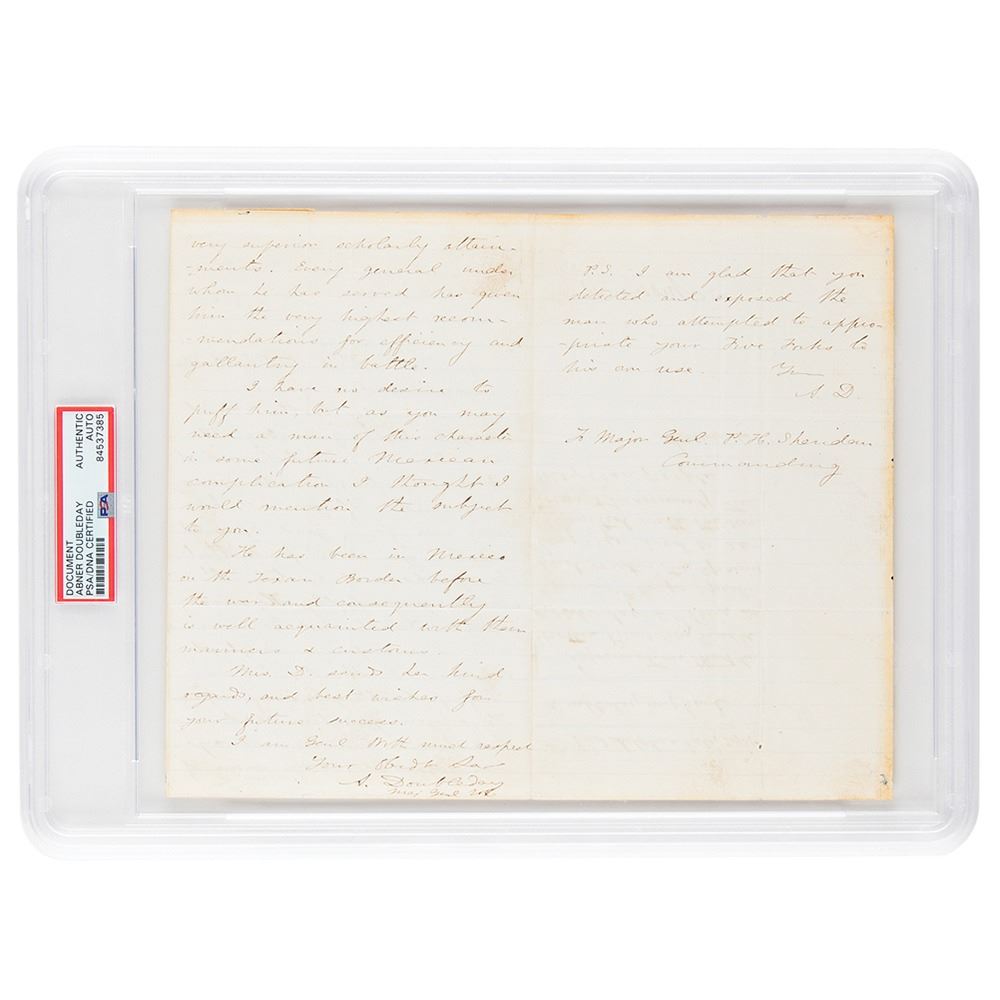 DOCUMENT
ABNER DOUBLEDAY
PSA/DNA CERTIFIED
AUTHENTIC
AUTO
84537385
PSA
very superior scholarly attain-
-ments. Every general under
whom he has served has given
him the very highest recom-
-mendations for efficiency and
gallantry in battle.
I have no desire to
puff him, but as you may
need a man of this character
in some future Mexican
complication I thought I
would mention the subject
to you.
He has been in Mexico
on the Texan Border before
the war and consequently
is well acquainted with their
manners & customs.
Mrs. D. sends her kind
regards, and best wishes for
your future success.
I am Genl With much respect
Your Obedt Svt
A. Doubleday
Maj Genl Vols
P.S. I am glad that you
detected and exposed the
man who attempted to appro-
-priate your Five Forks to
his own use.
A. D.
To Major Genl. P. H. Sheridan
Commanding